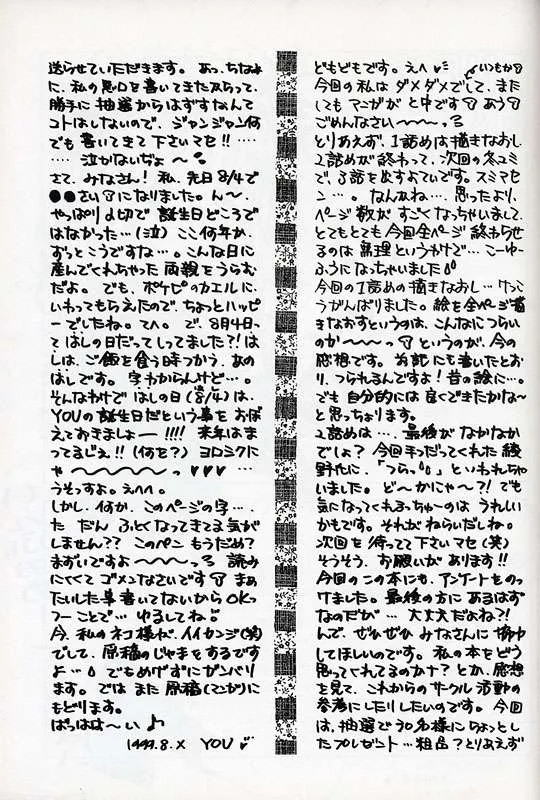 どもどもです。えへ
いつもか
今回の私は ダメダメでして、また
しても マンガが と中です あう
ごめんなさい〜〜っ
とりあえず、1話めは描きなおし
2話めが終わって、次回の冬コミ
で、3話を出すよていです。スミマセ
ン…。なんかね…。思ったより、
ページ数が すごくなっちゃいまして、
とてもとても 今回全ページ 終わらせ
るのは無理というわけで… こーゆー
ふうになっちゃいました
今回の1話めの描きなおし…けっこ
うがんばりました。絵を全ページ描
きなおすというのは、こんなにつらい
のか〜〜っ というのが、今の
感想です。前記にも書いたとお
り、つられるんですよ!昔の絵に…。
でも自分的には良くできたかな〜
と思っちょります。
2話めは…、最後がなかなか
でしょ?今回手だってくれた綾
野代に、「つらっ」といわれちゃ
いました。ど〜かにゃ〜?!でも
気になってくれふちゅーのは うれしい
かもです。それがねらいだしね。
次回を待ってて下さいマセ(笑)
そうそう、お願いがあります!!
今回のこの本にも、アンケートをのっ
けました。最後の方にあるはず
なのだが… 大丈夫だよね?!
んで、ぜひぜひ みなさんに
してほしいのです。私の本をどう
思ってくれてるのかナ?とか、感想
を見て、これからのサークル活動の
参考にしたりしたいのです。今回
は、抽選で30名様にちょっとし
たプレゼント…粗品?とりあえず
送らせていただきます。あっ、ちなみ
に、私の悪口を書いてきたからって、
勝手に抽選からはずすなんて
コトはしないので、ジャンジャン何
でも書いてきて下さいマセ!!……
……泣かないぢょ〜
さて、みなさん!私、先日8/4で
●●さいになりました。ん〜、
やっぱり〆切で誕生日どころで
はなかった…(泣)ここ何年か、
ずっとこうですな…。こんな日に
産んでくれちゃった両親をうらむ
だよ。でも、ポケピのカエルに、
いわってもらえたので、ちょっとハッピ
ーでしたね。てへ。で、8月4日っ
てはしの日だってしってました?!は
しは、ご飯を食う時つかう、あの
はしです。字わからんけど…。
そんなわけではしの日(8/4)は、
YOUの誕生日だという事をおぼ
えておきましょー!!!!来年はま
ってるじぇ!!(何を?)ヨロシクに
ゃ〜〜〜〜っ♥♥♥…
うそっすよ。えへへ。
しかし、何か、このページの字…、
だんだん ふとくなってきてる気が
しません??このペン もうだめで
まずいですよ〜〜っ 読み
にくくて ゴメンなさいです まあ
たいした事書いてないからOKっ
つーことで… ゆるしてね
今、私のネコ様が、イイカンジ(笑)
でして、原稿のじゃまをするです
よ… でもめげずにガンバリ
ます。では また 原稿(マンガ)に
もどります。
ばっはは〜い♪
1999.8.X YOU